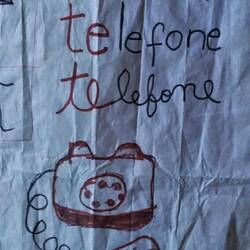 telefone
telefone